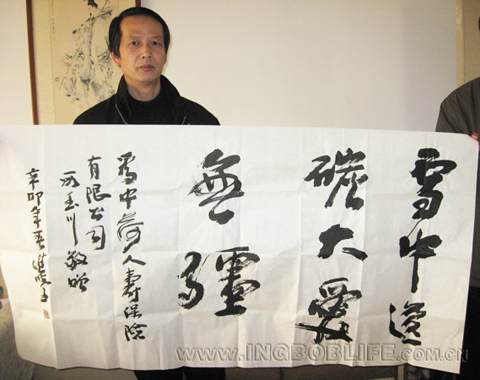 雪中送
碳大愛
無疆
中荷人壽保险
有限公司
玉川敬贈
辛卯年春
WWW.INGBOBLIFE.com.cn